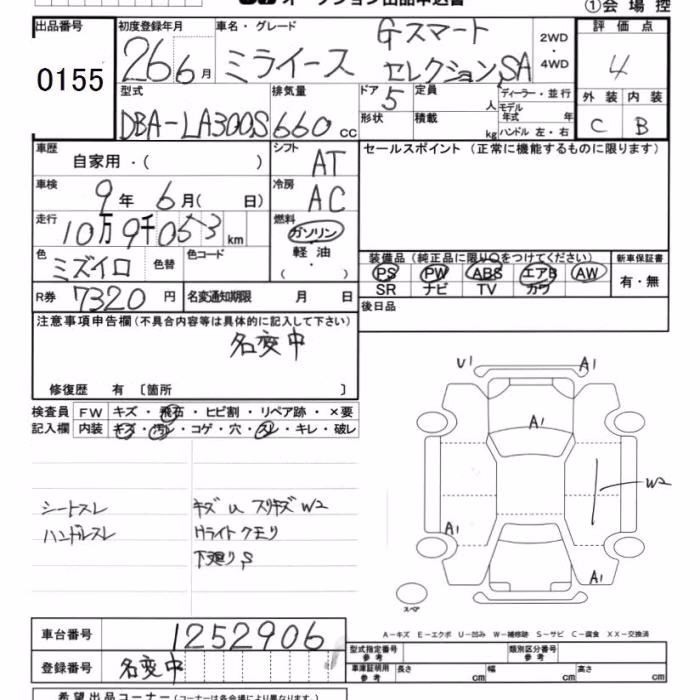 オークション出品申込書
①会場控
出品番号 0155
初度登録年月 26 6月
車名・グレード ミライース Gスマート セレクション SA
2WD・4WD
評価点 4
外装 C 内装 B
型式 DBA-LA300S
排気量 660 cc
ドア 5
形状
定員 人
積載 kg
ディーラー・並行
モデル年式 年
ハンドル 左・右
車歴 自家用・( )
シフト AT
セールスポイント (正常に機能するものに限ります)
車検 9年 6月( 日)
冷房 AC
走行 10万9千053 km
燃料 ガソリン
軽油・( ・ )
色 ミズイロ 色替 色コード
装備品 (純正品に限り○をつけてください)
新車保証書
PS PW ABS エアB AW
SR ナビ TV カワ
有・無
R券 7320 円
名変通知期限 月 日
後日品
注意事項申告欄 (不具合内容等は具体的に記入して下さい)
名変中
修復歴 有 〔箇所 〕
検査員記入欄
FW キズ・飛石・ヒビ割・リペア跡・×要
内装 キズ・汚レ・コゲ・穴・スレ・キレ・破レ
U1 A1
A1
W2
A1
A1
スペア
シートスレ
ハンドルスレ
キズ U スリキズ W2
Hライト クモリ
下廻り S
A-キズ E-エクボ U-凹み W-補修跡 S-サビ C-腐食 XX-交換済
車台番号 1252906
登録番号 名変中
型式指定番号 参考
類別区分番号 参考
車庫証明用 参考 長さ cm 幅 cm 高さ cm
希望出品コーナー (コーナーは各会場により異なります。)